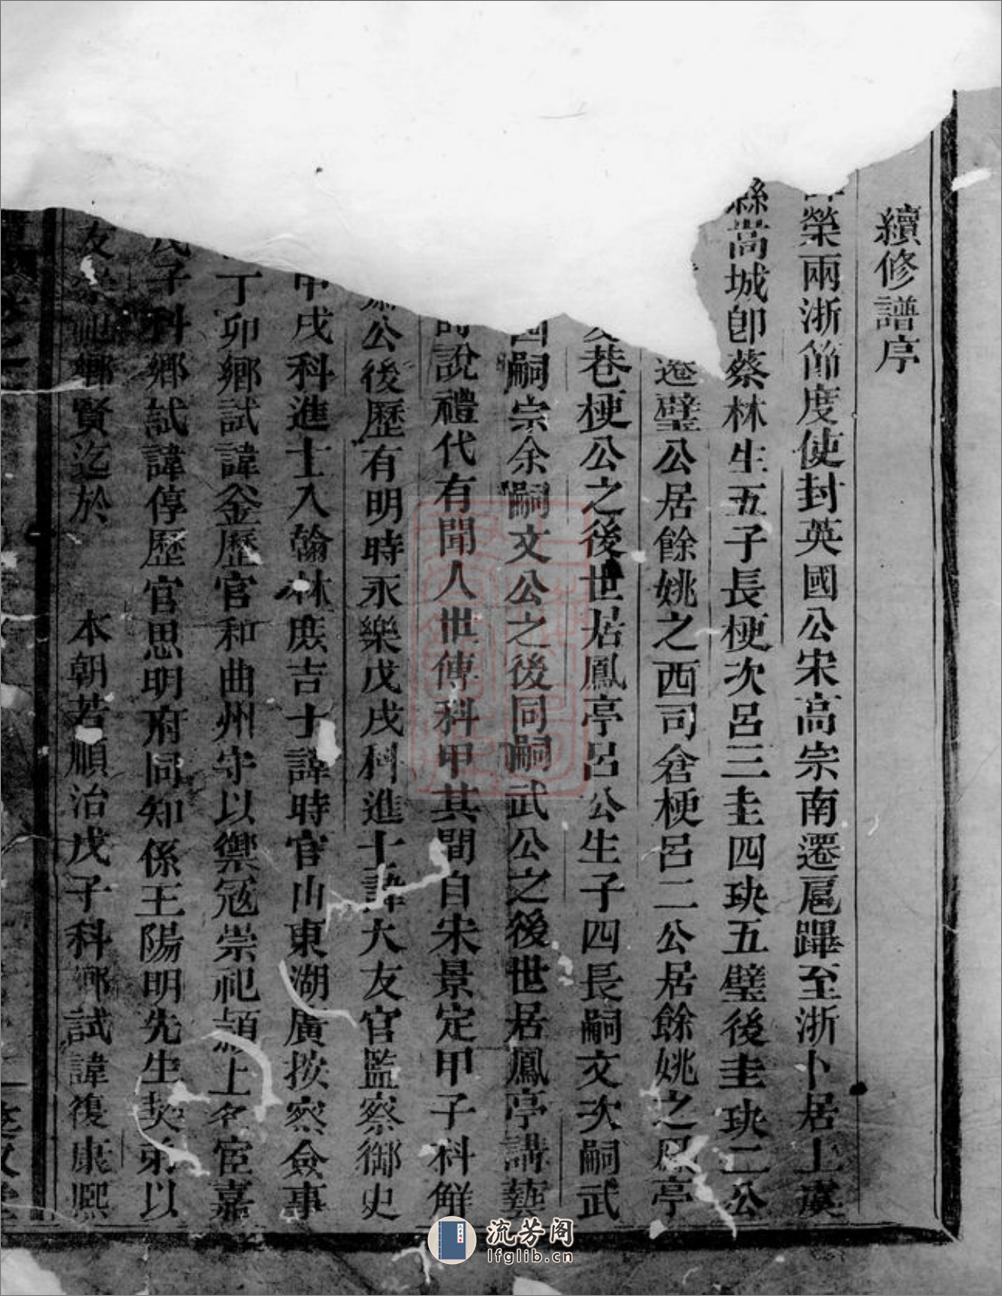 續修譜序
榮兩浙節度使封英國公宋高宗南遷扈蹕至浙卜居上虞
縣嵩城卽蔡林生五子長梗次呂三圭四玦五璧後圭玦二公
遷璧公居餘姚之西司倉梗呂二公居餘姚之鳳亭
巷梗公之後世居鳳亭呂公生子四長嗣文次嗣武
四嗣宗余嗣文公之後同嗣武公之後世居鳳亭講藝
說禮代有聞人世傳科甲其間自宋景定甲子科鮮
公後歷有明時永樂戊戌科進士諱大友官監察御史
甲戌科進士入翰林庶吉士諱時官山東湖廣按察僉事
丁卯鄉試諱釜歷官和曲州守以禦寇崇祀潁上名宦嘉
戊子科鄉試諱停歷官思明府同知係王陽明先生契弟以
鄉賢迄於 本朝若順治戊子科鄉試諱復康熙
流芳阁
lfglib.cn